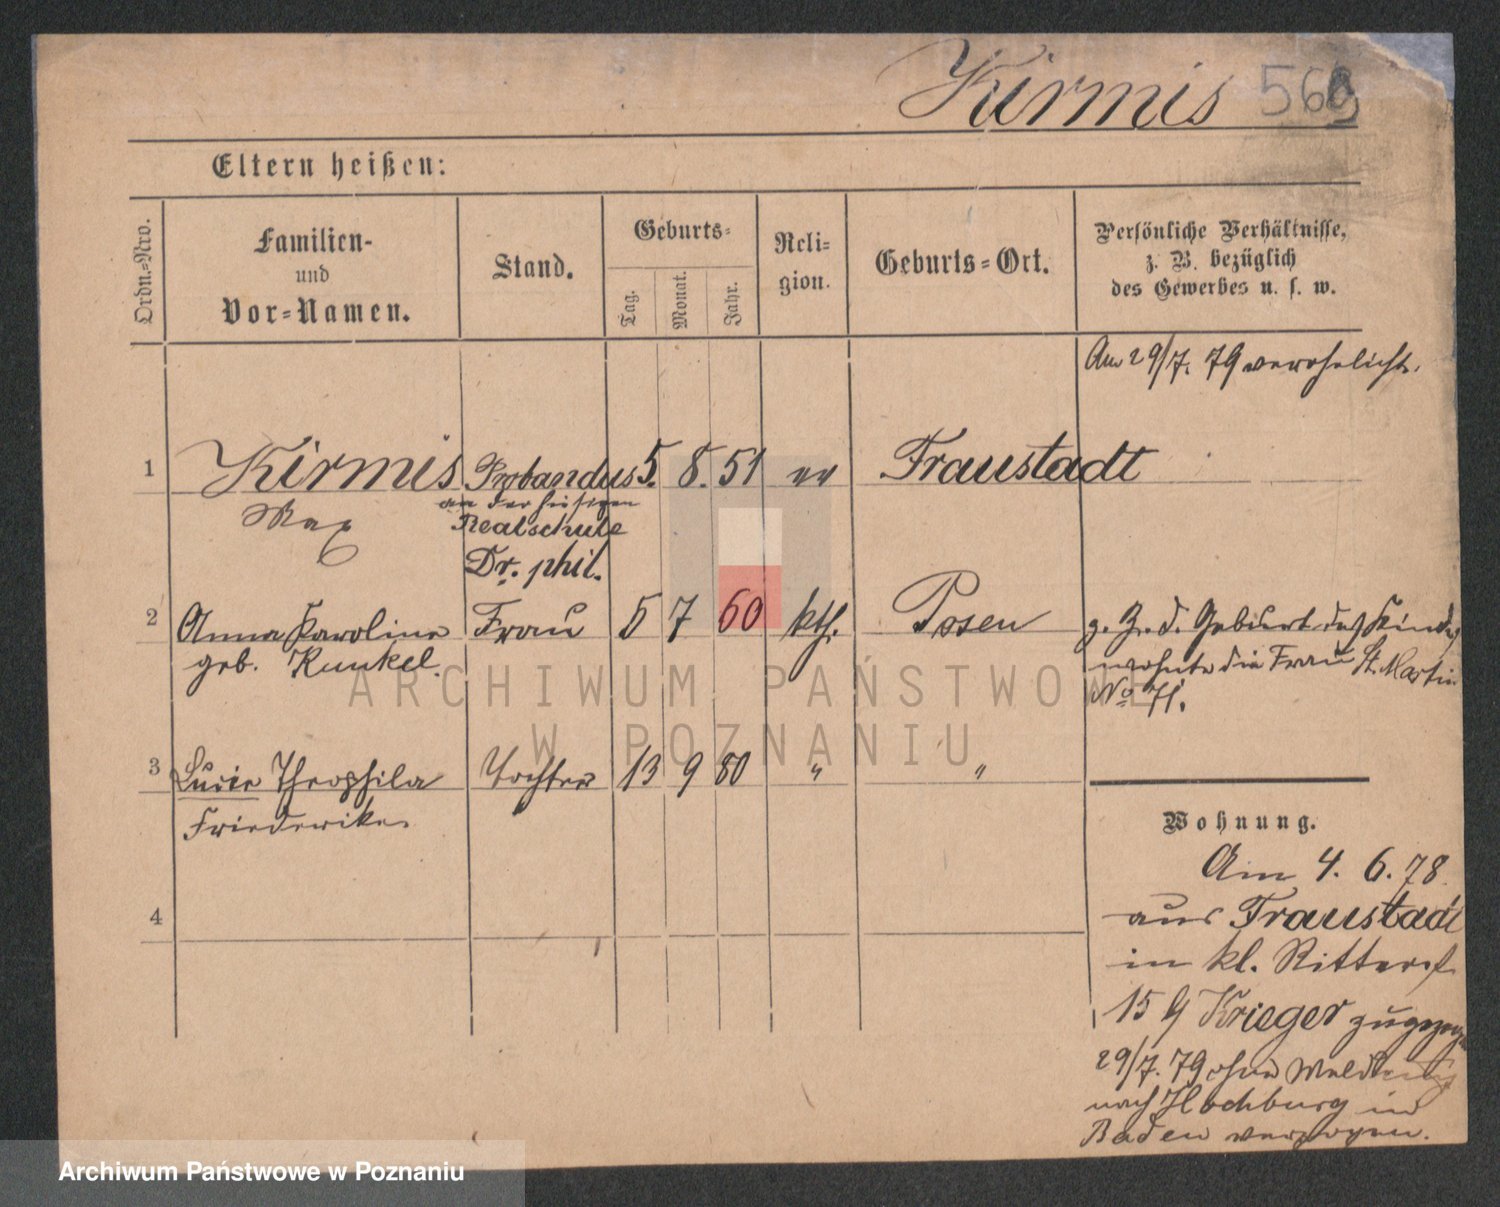 Kirmis 568
Eltern heißen:
Ordn.-Nro.
Familien-
und
Vor-Namen.
Stand.
Geburts-
Tag.
Monat.
Jahr.
Reli-
gion.
Geburts-Ort.
Persönliche Verhältnisse,
z. B. bezüglich
des Gewerbes u. s. w.
Am 29/7. 79 verehelicht.
1 Kirmis Probandus 5. 8. 51 ev Fraustadt
Max
an der hiesigen
Realschule
Dr. phil.
2 Anna Karoline Frau 5 7 60 kth. Posen
geb. Kunkel.
z. Z. d. Geburt des Kindes
wohnte die Frau St. Martin
No 71.
3 Lucie Theophila Tochter 13 9 80 " "
Friederike
4
Wohnung.
Am 4. 6. 78
aus Fraustadt
in kl. Ritterst
15 Krieger zugezogen
29/7. 79 ohne Meldung
nach Hochburg in
Baden verzogen.
ARCHIWUM PAŃSTWOWE
W POZNANIU
Archiwum Państwowe w Poznaniu